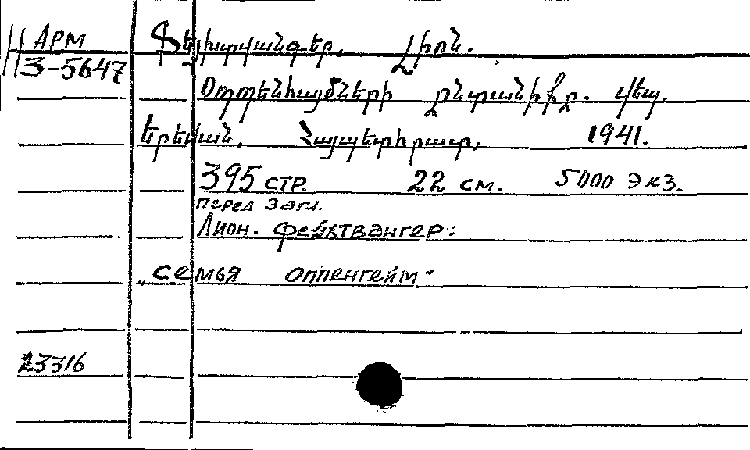 АРМ
3-5647
Ֆեյխտվանգեր, Լիոն.
Օպպենհայմների ընտանիքը. վեպ.
Երեվան, Հայպետհրատ, 1941.
395 стр. 22 см. 5000 экз.
перед загл.
Лион. Фейхтвангер:
„семья оппенгейм"
23316